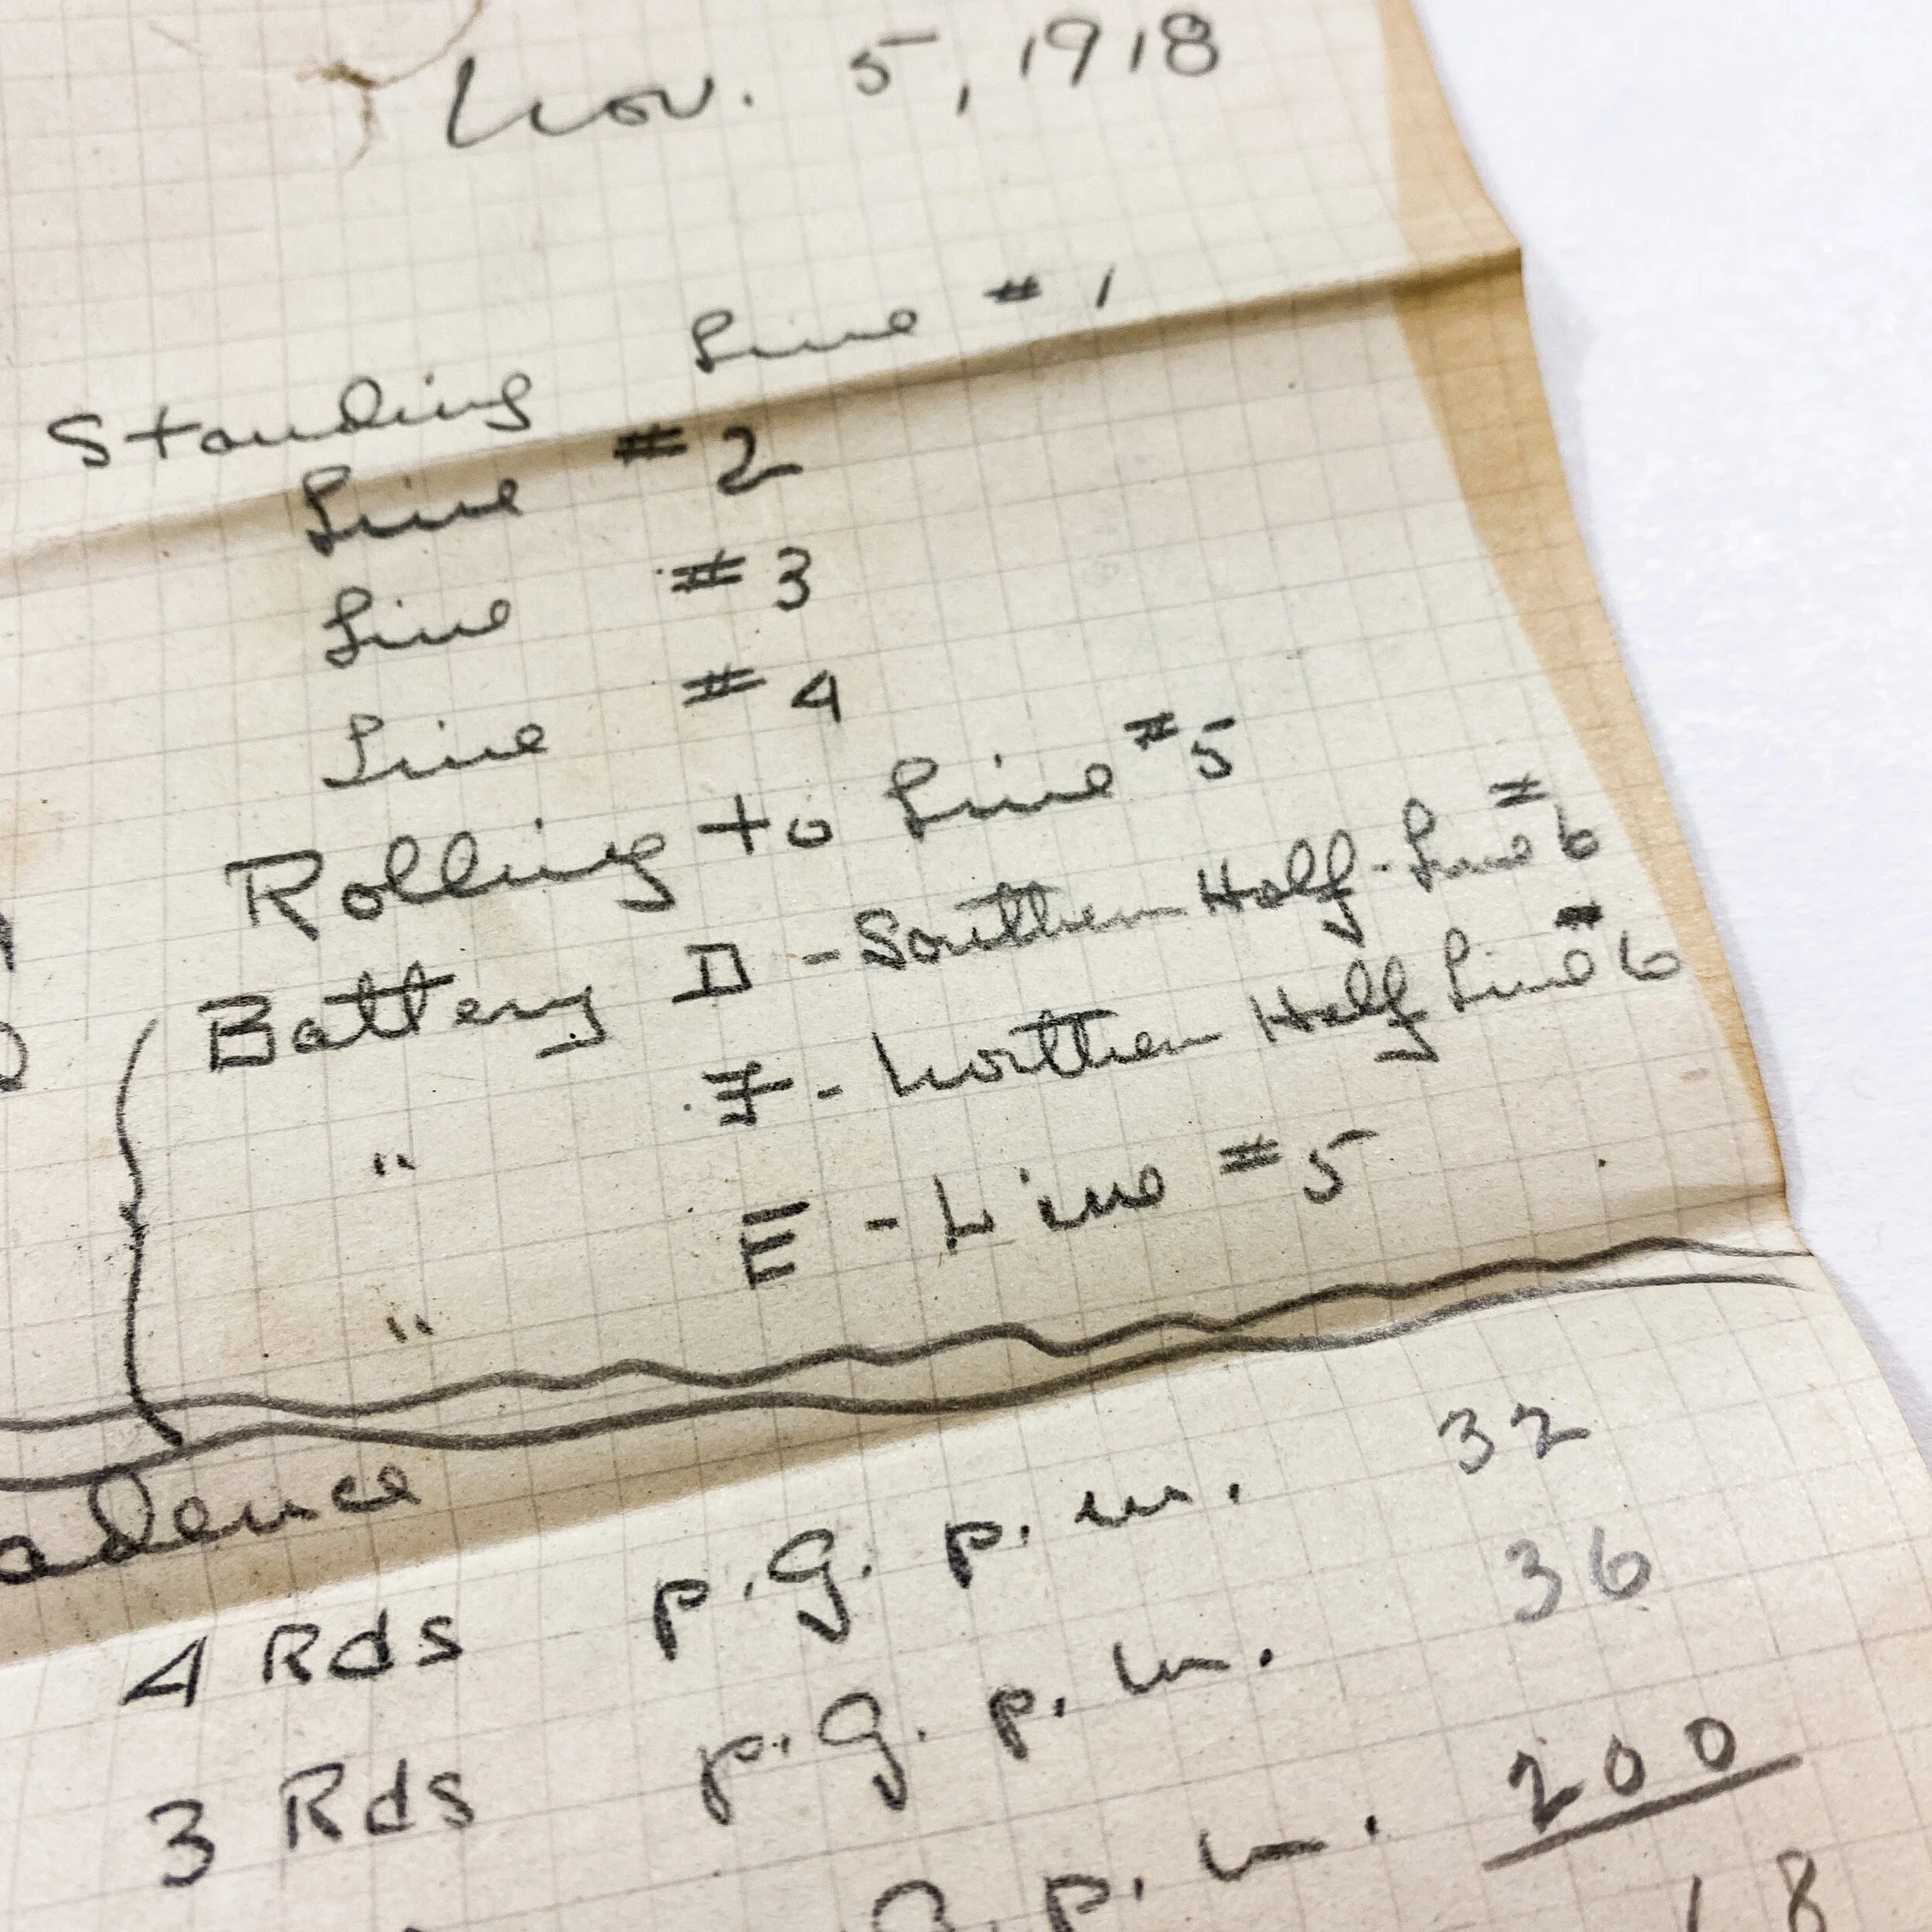 Nov. 5, 1918
Standing Line #1
Line #2
Line #3
Line #4
Rolling to Line #5
Battery D - Southern Half - Line #6
" F - Northern Half Line #6
" E - Line #5
adence
4 Rds p.G. p.m. 32
3 Rds p.G. p.m. 36
G. p.m. 200
18